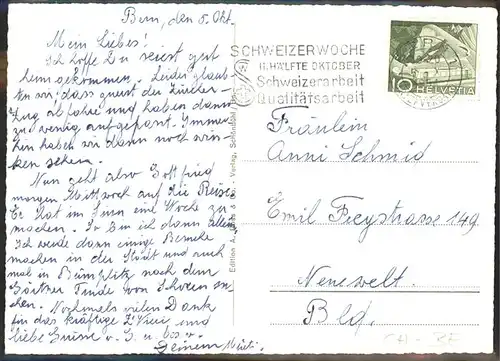 Bern, den 5. Okt.
Mein Liebes!
Ich hoffe Du seiest gut
heimgekommen. Leider glaub-
ten wir, dass zuerst der Zürcher-
Zug abfahre und haben dann
zu wenig aufgepasst. Immer-
hin haben wir dann noch win-
ken sehen.
Nun geht also Gottfried
morgen Mittwoch auf die Reise
Er hat im Sinn eine Woche zu
machen. So bin ich dann allein
Ich werde dann einige Besuche
machen in der Stadt und auch
mal in Bümpliz nach dem
Gärtner
von Schwein
chen. Nochmals vielen Dank
für das kräftige Z'Vieri und
liebe Grüsse v. G. u. bes. v.
Deinem Muti.
Edition A. & Co., Verlag, Schönbühl
SCHWEIZERWOCHE
II. HÄLFTE OKTOBER
Schweizerarbeit
Qualitätsarbeit
10 HELVETIA
Fräulein
Anni Schmid
Emil Freystrasse 149
Neuewelt.
Bld.
CH - BE